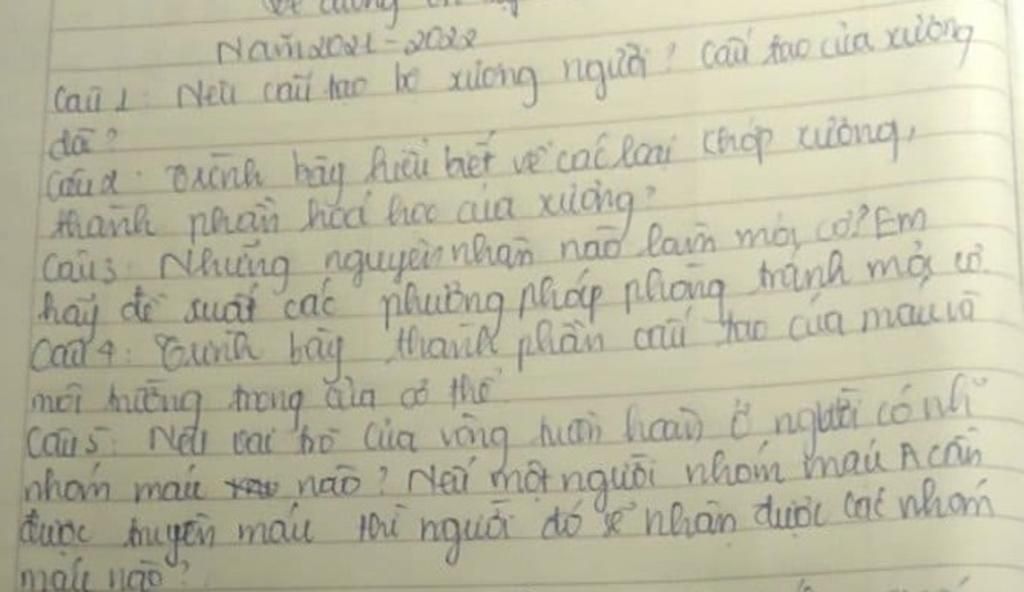 Đề cương ôn
Năm 2021-2022
Câu 1: Nêu cấu tạo bộ xương người? Cấu tạo của xương
dài?
Câu 2: Trình bày hiểu biết về các loại khớp xương,
thành phần hóa học của xương?
Câu 3: Những nguyên nhân nào làm mỏi cơ? Em
hãy đề xuất các phương pháp phòng tránh mỏi cơ.
Câu 4: Trình bày thành phần cấu tạo của máu và
môi trường trong của cơ thể
Câu 5: Nêu vai trò của vòng tuần hoàn ở người có n
nhóm máu nào? Nếu một người nhóm máu A cần
được truyền máu thì người đó sẽ nhận được các nhóm
máu nào?